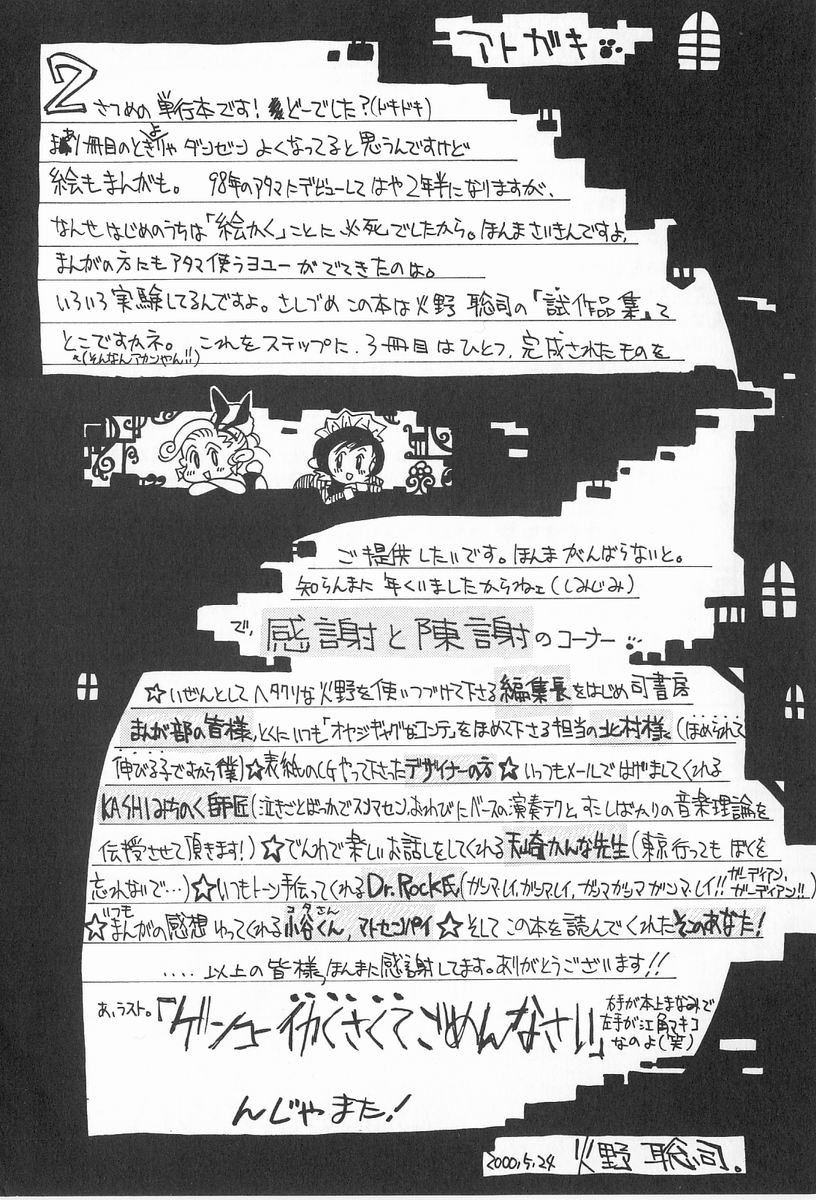 アトガキ
2さつめの単行本です！どーでした？(ドキドキ)
まあ1冊目のときよりゃダンゼンよくなってると思うんですけど
絵もまんがも。 98年のアタマにデビューしてはや2年半になりますが、
なんせはじめのうちは「絵かく」ことに必死でしたから。ほんまさいきんですよ、
まんがの方にもアタマ使うヨユーがでてきたのは。
いろいろ実験してるんですよ。さしづめこの本は火野聡司の「試作品集」て
とこですかネ。これをステップに、3冊目はひとつ、完成されたものを
(そんなんアカンやん!!)
ご提供したいです。ほんまがんばらないと。
知らんまに年くいましたからねェ(しみじみ)
で、感謝と陳謝のコーナー
☆いぜんとしてヘタクソな火野を使いつづけて下さる編集長をはじめ司書房
まんが部の皆様、とくにいつも「オヤジギャグなコンテ」をほめて下さる担当の北村様(ほめられて
伸びる子ですから僕)☆表紙のCGやって下さったデザイナーの方☆いっつもメールではげましてくれる
KASHIみちのく師匠(泣きごとばっかでスンマセン。おわびにベースの演奏テクと、すこしばかりの音楽理論を
伝授させて頂きます！)☆でんわで楽しいお話しをしてくれる天崎かんな先生(東京行ってもぼくを
忘れないで…)☆いつもトーン手伝ってくれるDr.Rock氏(ガンマ・レイ、ガンマレイ、ガンマガンマガンマ・レイ!!ガーディアン、ガーディアン!!)
☆いつもまんがの感想ゆってくれる小谷くん、マトセンパイ☆そしてこの本を読んでくれたそこのあなた！
....以上の皆様、ほんまに感謝してます。ありがとうございます!!
あ、ラスト。「ゲンコーイカくさくてごめんなさい」
右手が本上まなみで
左手が江角マキコ
なのよ(笑)
んじゃまた！
2000,5,24 火野聡司。